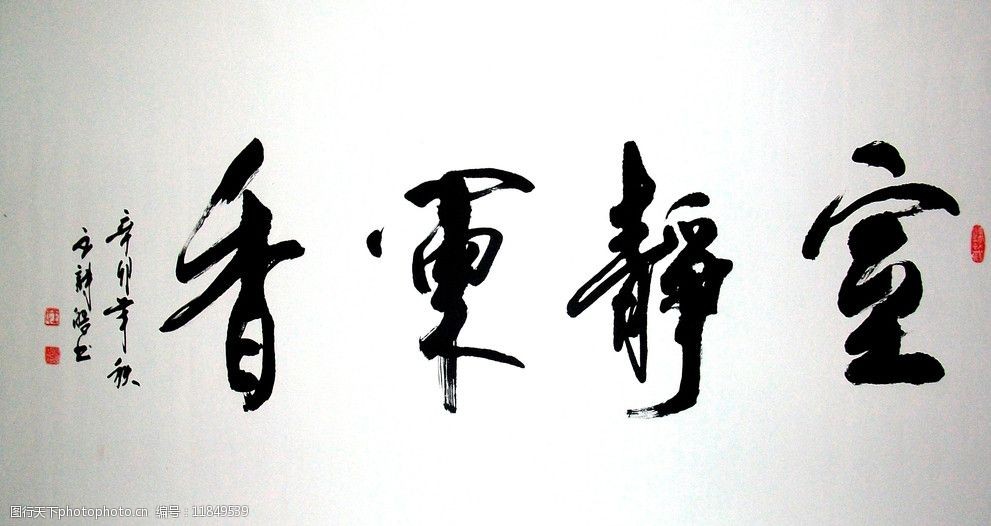 室靜蘭香
辛卯年秋
书
图行天下photophoto.cn 编号：11849539